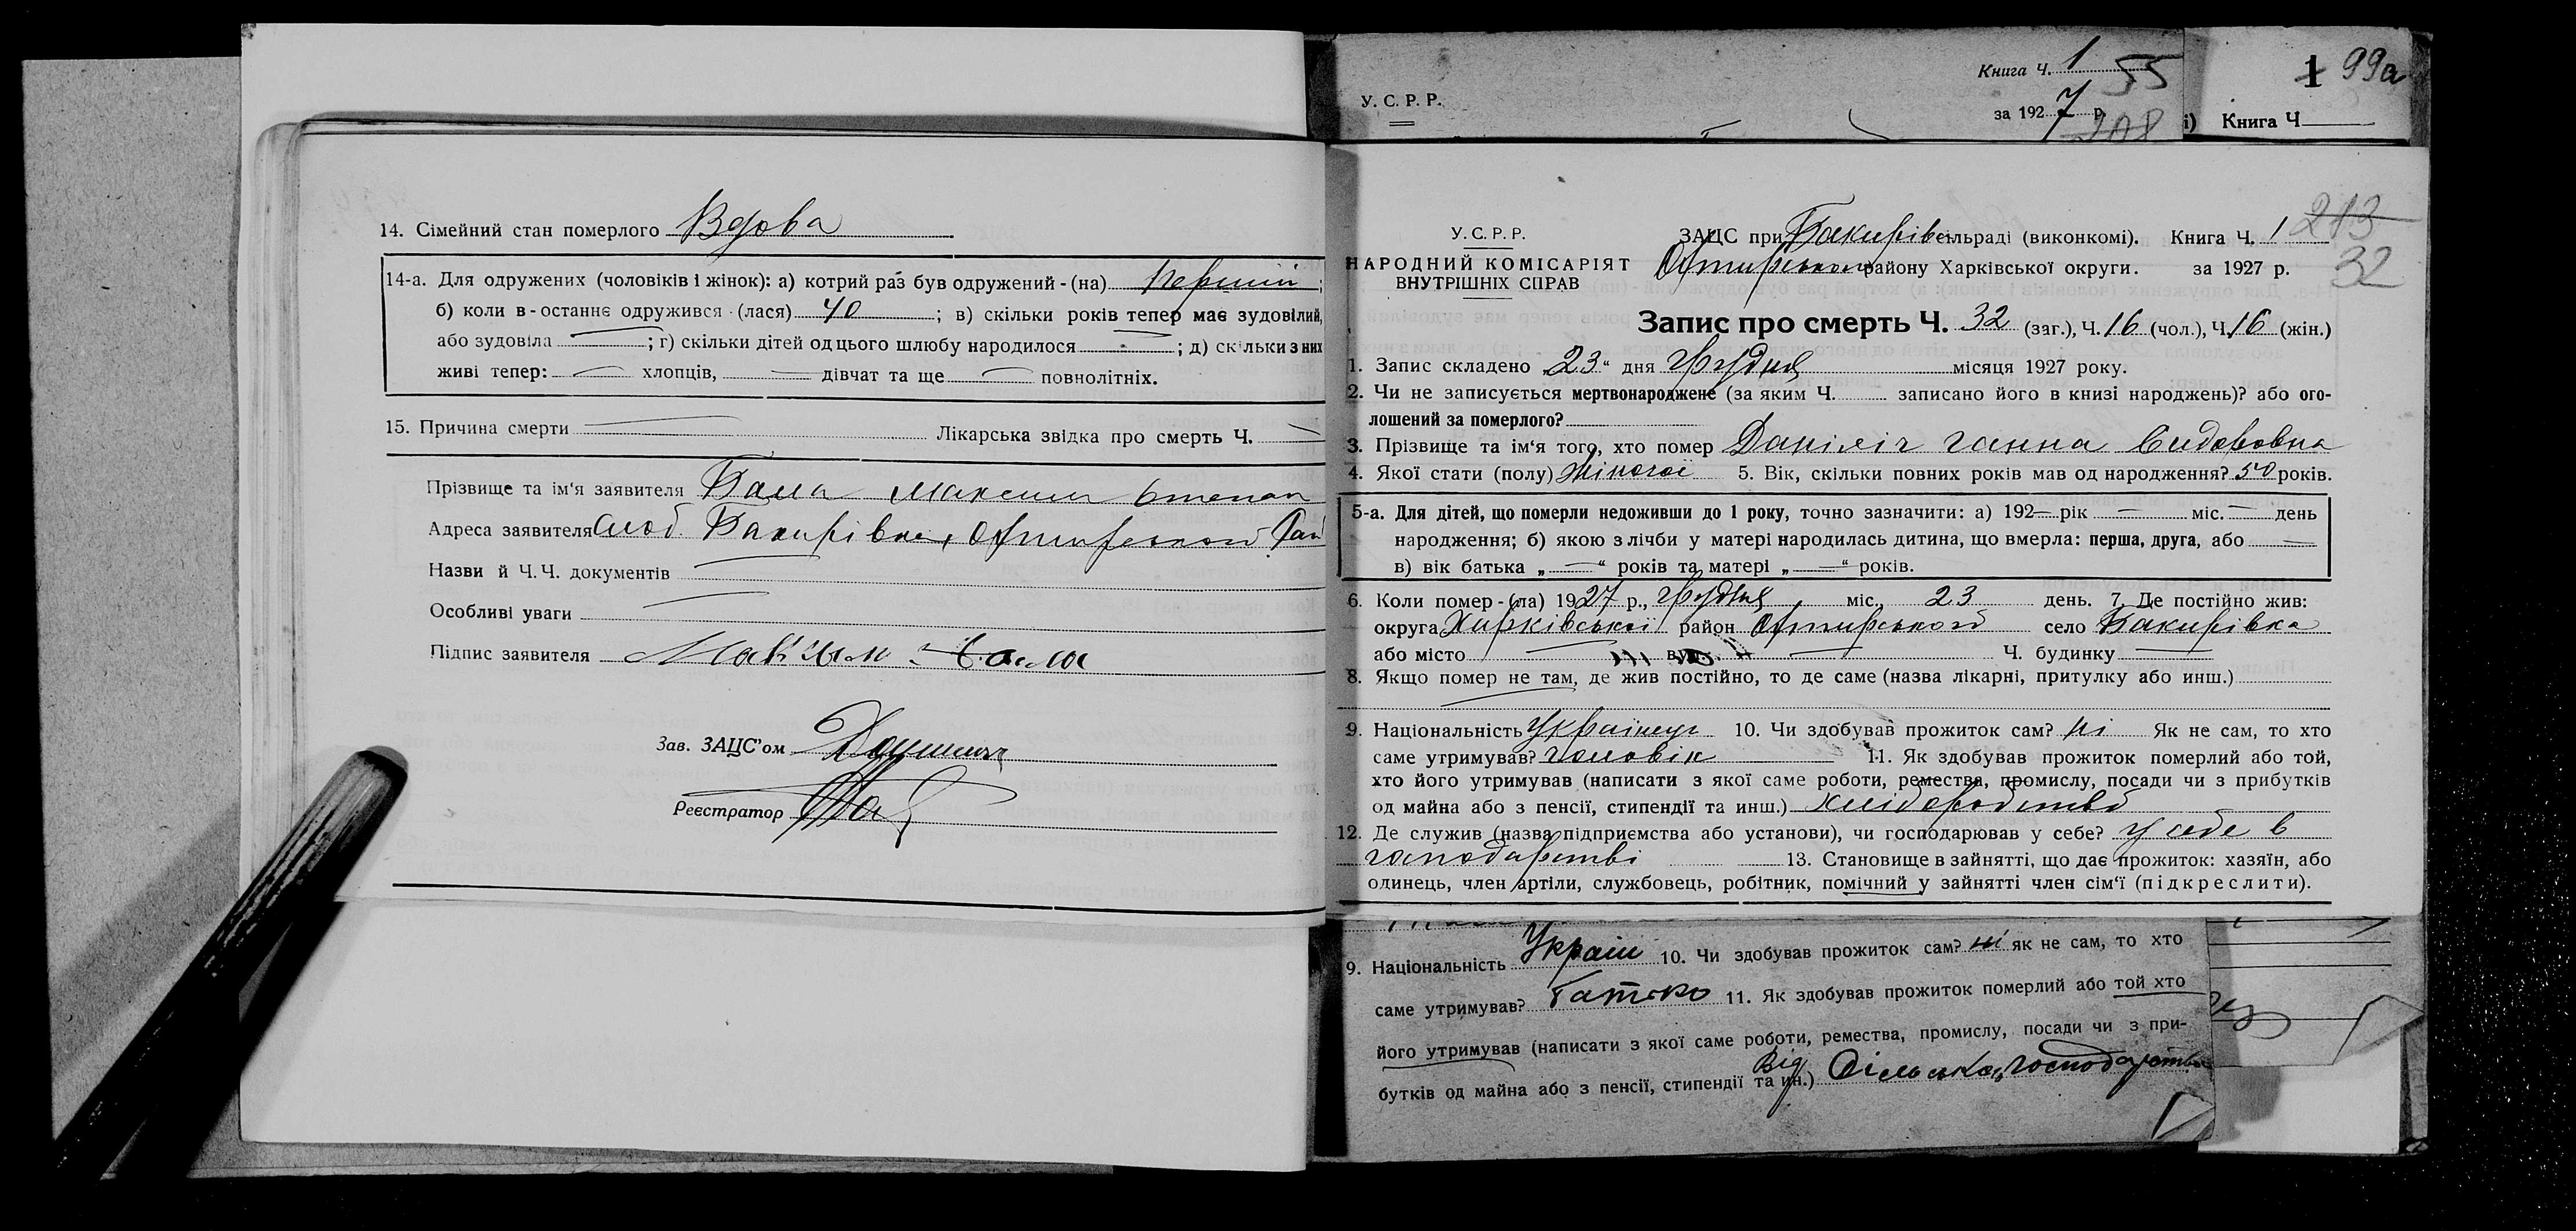 14. Сімейний стан померлого Вдова
14-а. Для одружених (чоловіків і жінок): а) котрий раз був одружений-(на) Первий;
б) коли в-останнє одружився-(лася) 40; в) скільки років тепер має зудовілий,
або зудовіла —; г) скільки дітей од цього шлюбу народилося —; д) скільки з них
живі тепер: — хлопців, — дівчат та ще — повнолітніх.
15. Причина смерти — Лікарська звідка про смерть Ч. —
Прізвище та ім'я заявителя Бала Максим Степан
Адреса заявителя Слоб. Бакирівка, Охтирського Рай
Назви й Ч.Ч. документів —
Особливі уваги —
Підпис заявителя Бала
Зав. ЗАЦС'ом
Реєстратор
У. С. Р. Р.
Книга Ч. 1 55
за 1927 р.
208
1 99а
і) Книга Ч
У. С. Р. Р.
НАРОДНИЙ КОМІСАРІЯТ
ВНУТРІШНІХ СПРАВ
ЗАЦС при Бакирів сільраді (виконкомі). Книга Ч. 1 213
Охтирському району Харківської округи. за 1927 р. 32
Запис про смерть Ч. 32 (заг.), Ч. 16 (чол.), Ч. 16 (жін.)
1. Запис складено „23“ дня Грудня місяця 1927 року.
2. Чи не записується мертвонароджене (за яким Ч. записано його в книзі народжень)? або ого-
лошений за померлого?
3. Прізвище та ім'я того, хто помер Даніліч Ганна Сидоровна
4. Якої стати (полу) Жіночої 5. Вік, скільки повних років мав од народження? 50 років.
5-а. Для дітей, що померли недоживши до 1 року, точно зазначити: а) 192— рік — міс. — день
народження; б) якою з лічби у матері народилась дитина, що вмерла: перша, друга, або —
в) вік батька „—“ років та матері „—“ років.
6. Коли помер-(ла) 1927 р., Грудня міс. 23 день. 7. Де постійно жив:
округа Харківської район Охтирського село Бакирівка
або місто — вул. — Ч. будинку —
8. Якщо помер не там, де жив постійно, то де саме (назва лікарні, притулку або инш.)
9. Національність Українц 10. Чи здобував прожиток сам? ні Як не сам, то хто
саме утримував? чоловік 11. Як здобував прожиток померлий або той,
хто його утримував (написати з якої саме роботи, ремества, промислу, посади чи з прибутків
од майна або з пенсії, стипендії та инш.) хліборобство
12. Де служив (назва підприємства або установи), чи господарював у себе? у себе в
господарстві 13. Становище в зайнятті, що дає прожиток: хазяїн, або
одинець, член артіли, службовець, робітник, помічний у зайнятті член сім'ї (підкреслити).
9. Національність Украін 10. Чи здобував прожиток сам? ні як не сам, то хто
саме утримував? батько 11. Як здобував прожиток померлий або той хто
його утримував (написати з якої саме роботи, ремества, промислу, посади чи з при-
бутків од майна або з пенсії, стипендії та ин.) Від Сільська господарства